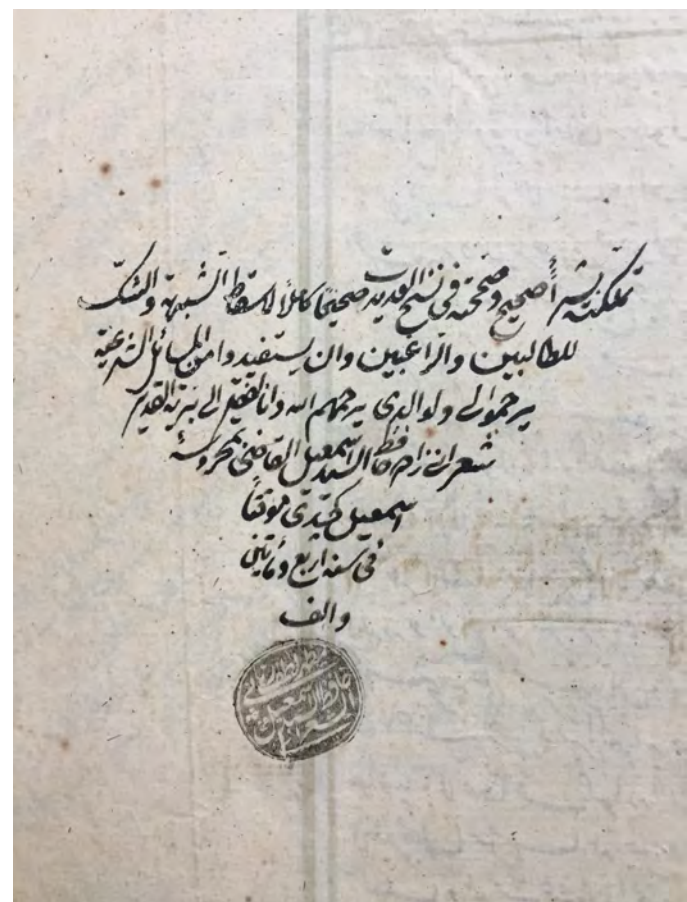 تملكته بشراء صحيح وصححته في نسخ العديدة صحيحا كاملا لاسقاط الشبهة والشك
للطالبين والراغبين وان يستفيدوا من المسائل الشرعية
يرحموا لي ولوالدي يرحمهم الله وانا الفقير الى ربه القدير
زاده حافظ السيد اسمعيل القاضي بمحروسة
اسمعيل كچيدى موقتا
في سنة اربع ومأتين
والف